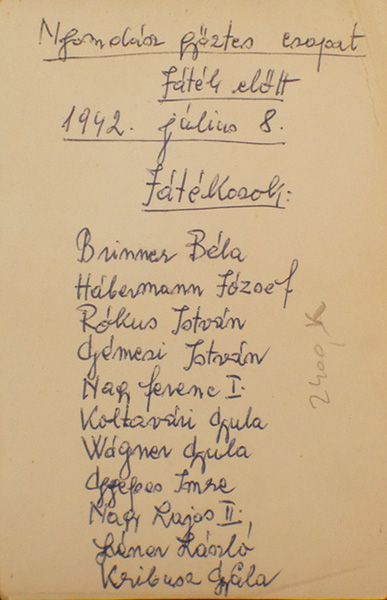 Nyomdász győztes csapat
Játék előtt
1942. július 8.
Játékosok:
Brinner Béla
Hábermann József
Rókus István
Gémesi István
Nagy Ferenc I.
Koltavári Gyula
Wágner Gyula
Imre
Nagy Lajos II.,
László
Kribusz Gyula
2400,